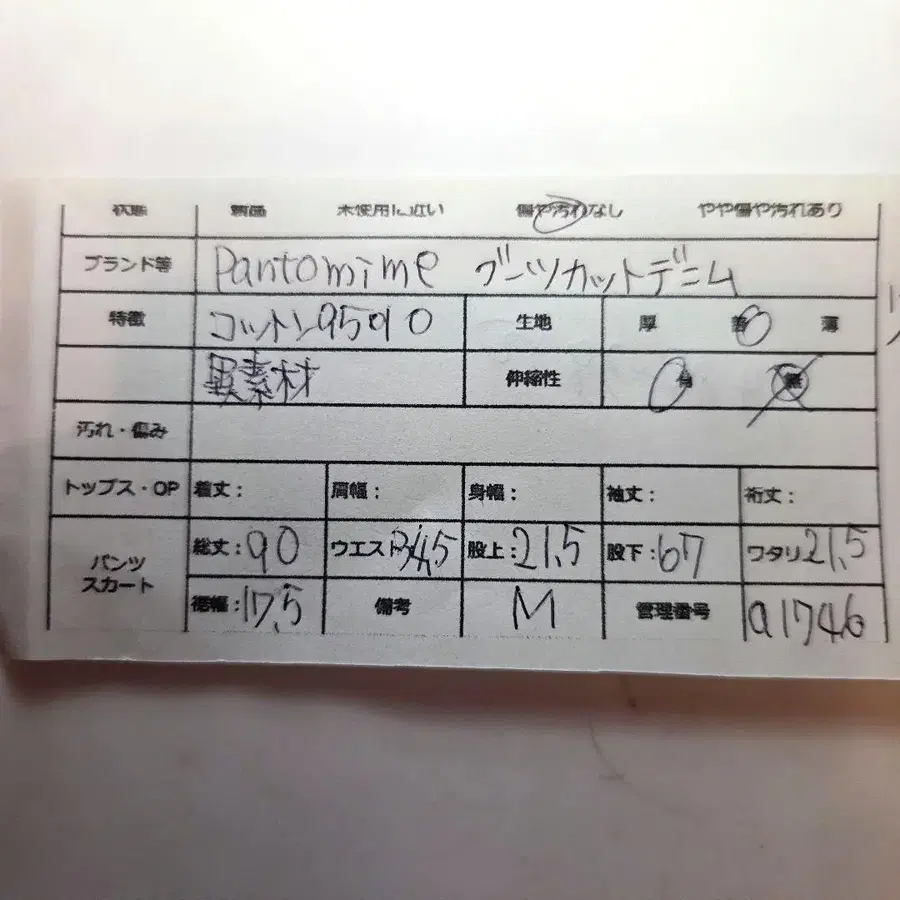 状態 新品 未使用に近い 傷や汚れなし やや傷や汚れあり
ブランド等 Pantomime ブーツカットデニム
特徴 コットン 生地 厚 普 薄
異素材 伸縮性 有 無
汚れ・傷み
トップス・OP 着丈: 肩幅: 身幅: 袖丈: 裄丈:
パンツ スカート 総丈:90 ウエスト34,5 股上:21,5 股下:67 ワタリ21,5
裾幅:17,5 備考 M 管理番号 a1746